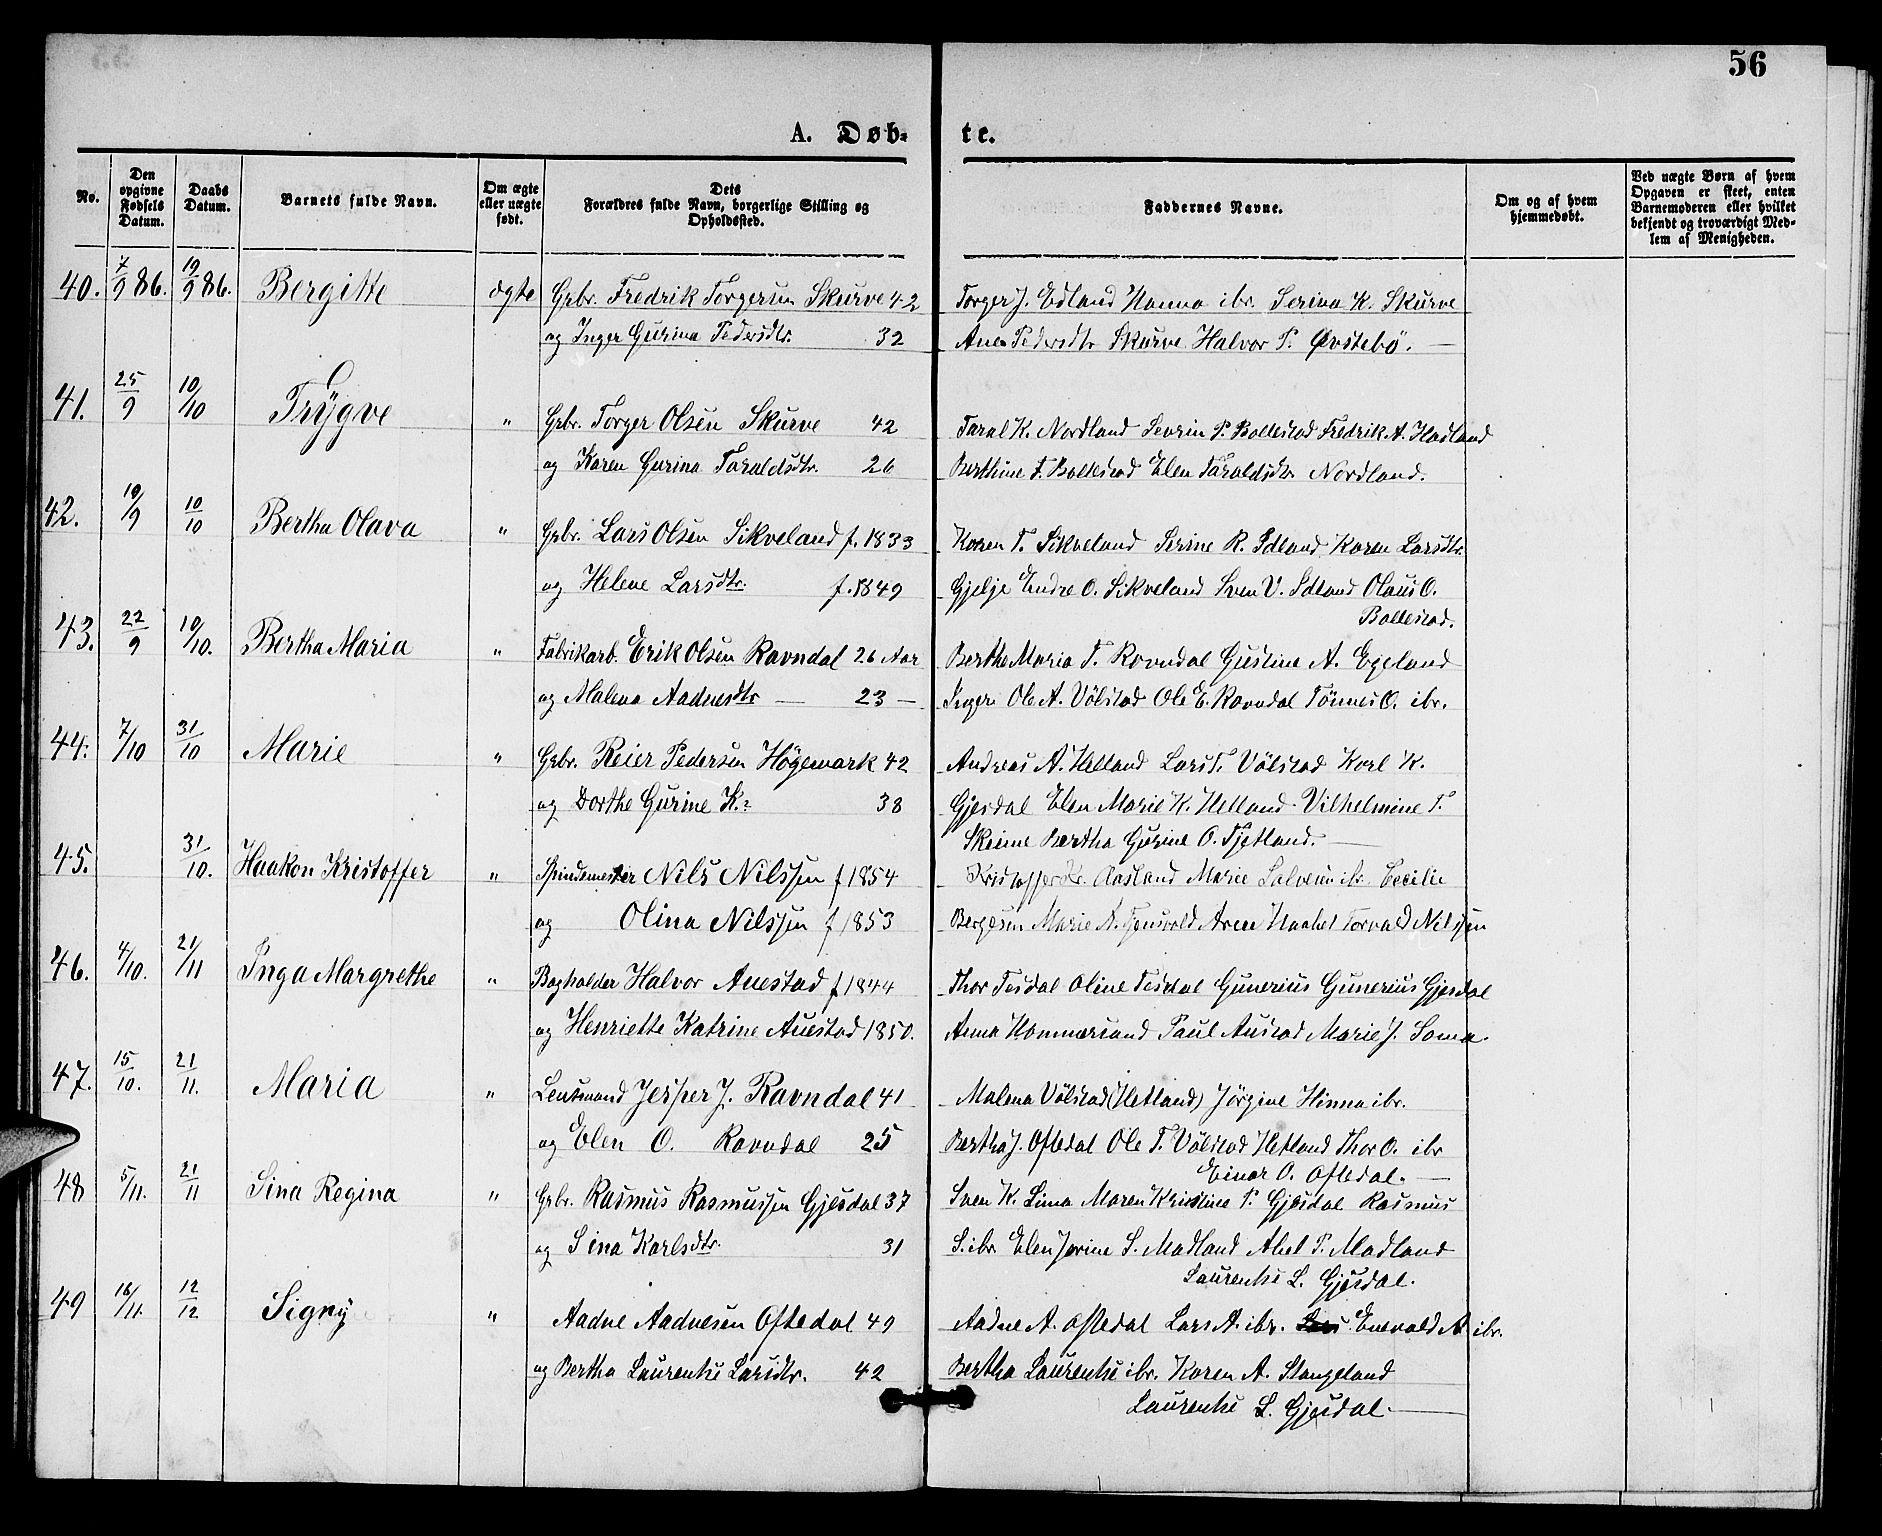 56
A. Døb- te.
No.
Den opgivne Fødsels Datum.
Daabs Datum.
Barnets fulde Navn.
Om ægte eller uægte født.
Dets Forældres fulde Navn, borgerlige Stilling og Opholdssted.
Faddernes Navne.
Om og af hvem hjemmedøbt.
Ved uægte Børn af hvem Opgaven er skeet, enten Barnemoderen eller hvilket bekjendt og troværdigt Medlem af Menigheden.
40. 7/9 86. 19/9 86. Bergitte ægte Grbr. Fredrik Torgersen Skurve 42 Torger J. Edland Hanna ibr. Serina K. Skurve
og Inger Gurina Pedersdtr. 32 Ane Pedersdtr Skurve Halvor P. Øvstebø.
41. 25/9 10/10 Trygve " Grbr. Torger Olsen Skurve 42 Taral K. Nordland Sevrin P. Bollestad Fredrik A. Hadland
og Karen Gurina Taraldsdtr. 26 Berthine T. Bollestad Elen Taraldsdtr Nordland.
42. 19/9 10/10 Bertha Olava " Grbr. Lars Olsen Sikveland f. 1833 Karen T. Sikveland Serine R. Idland Karen Larsdtr.
og Helene Larsdtr. f. 1849 Gjelje Endre O. Sikveland Sven V. Idland Olaus O.
Bollestad.
43. 22/9 10/10. Bertha Maria " Fabrikarb. Erik Olsen Ravndal 26 Aar Berthe Maria T. Ravndal Gustine A. Egeland
og Malena Aadnesdtr — 23 — Inger Ole A. Vølstad Ole E. Ravndal Tønnes O. ibr.
44. 7/10 31/10 Marie " Grbr. Reier Pedersen Høgemark 42 Andreas A. Helland Lars T. Vølstad Karl K.
og Dorthe Gurine K. 38 Gjesdal Elen Marie K. Helland Vilhelmine T.
Skeime Bertha Gurine O. Fjetland.
45. 31/10. Haakon Kristoffer " Spindemester Nils Nilssen f 1854 Kristoffer Kr. Aasland Marie Salvesen ibr. Cecilie
og Olina Nilssen f 1853 Bergesen Marie A. Aren Haahel Torvald Nilssen
46. 4/10. 21/11 Inga Margrethe " Bogholder Halvor Auestad f 1844 Thor Tesdal Oline Tesdal Gunerius Gunerius Gjesdal
og Henriette Katrine Auestad 1850. Anna Hommersand Paul Austad Marie J. Soma.
47. 15/10. 21/11. Maria " Lensmand Jesper J. Ravndal 41 Malena Vølstad (Hetland) Jørgine Hinna ibr.
og Elen O. Ravndal 25 Bertha J. Oftedal Ole T. Vølstad Hetland Thor O. ibr
Einar O. Oftedal.
48 5/11. 21/11 Sina Regina " Grbr. Rasmus Rasmussen Gjesdal 37 Sven K. Lima Maren Kristine P. Gjesdal Rasmus
og Sina Karlsdtr. 31 S. ibr Elen Jorine S. Madland Abel P. Madland
Laurentse L. Gjesdal.
49 16/11. 12/12 Signy " Aadne Aadnesen Oftedal 49 Aadne A. Oftedal Lars A. ibr. Enevald A ibr.
og Bertha Laurentse Larsdtr. 42 Bertha Laurentse ibr. Karen A. Stangeland
Laurentse L. Gjesdal.